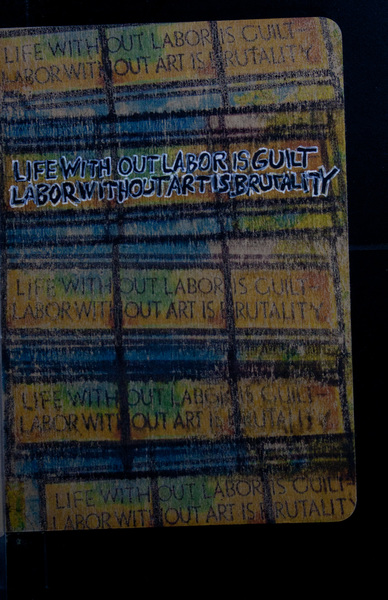 LIFE WITH OUT LABOR IS GUILT-
LABOR WITHOUT ART IS BRUTALITY
LIFE WITH OUT LABOR IS GUILT
LABOR WITHOUT ART IS BRUTALITY
LIFE WITH OUT LABOR IS GUILT-
LABOR WITHOUT ART IS BRUTALITY
LIFE WITH OUT LABOR IS GUILT-
LABOR WITHOUT ART IS BRUTALITY
LIFE WITH OUT LABOR IS GUILT-
LABOR WITHOUT ART IS BRUTALITY